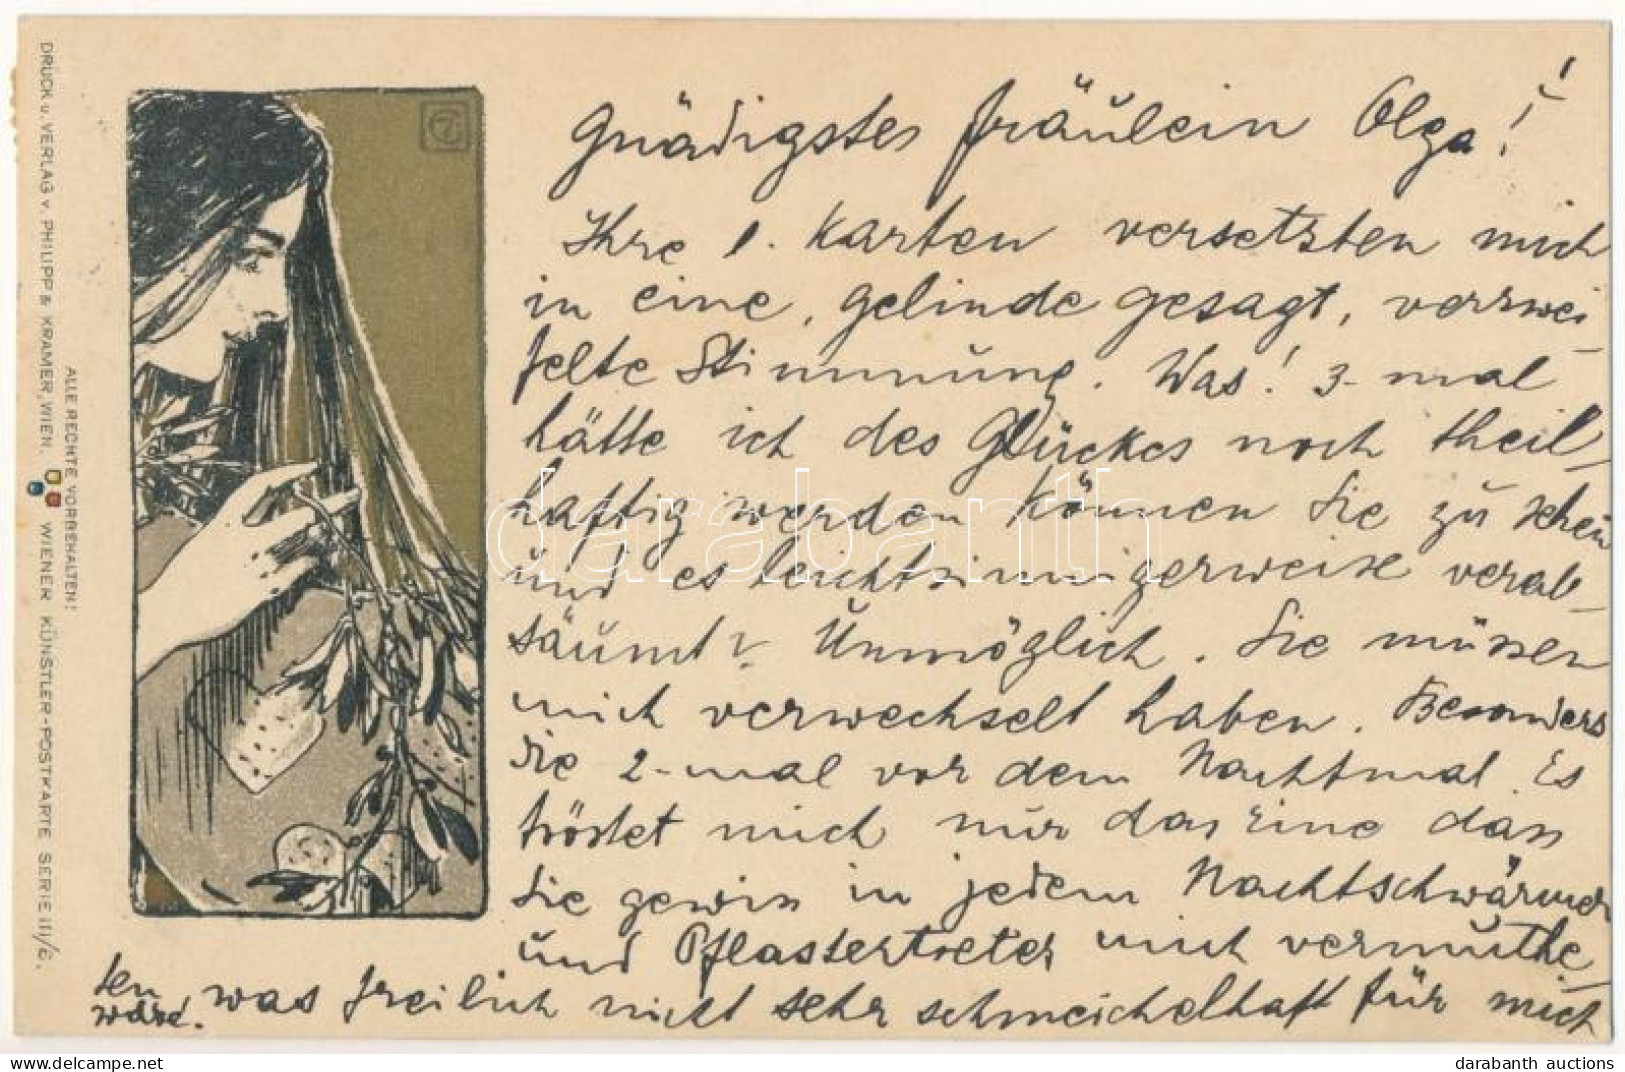 Gnädigstes Fräulein Olga!
Ihre l. Karten versetzten mich
in eine, gelinde gesagt, verzwei
felte Stimmung. Was! 3-mal
hätte ich des Glückes noch theil-
haftig werden können Sie zu sehen
und es leichtsinnigerweise verab-
säumt? Unmöglich. Sie müssen
mich verwechselt haben. Besonders
die 2-mal vor dem Nachtmal. Es
tröstet mich nur das eine dass
Sie gewiss in jedem Nachtschwärmer
und Pflastertreter mich vermuthe-
ten, was freilich nicht sehr schmeichelhaft für mich
wäre.
DRUCK u. VERLAG v. PHILIPP & KRAMER, WIEN. WIENER KÜNSTLER-POSTKARTE SERIE III/6.
ALLE RECHTE VORBEHALTEN!
darabanth
darabanth auctions